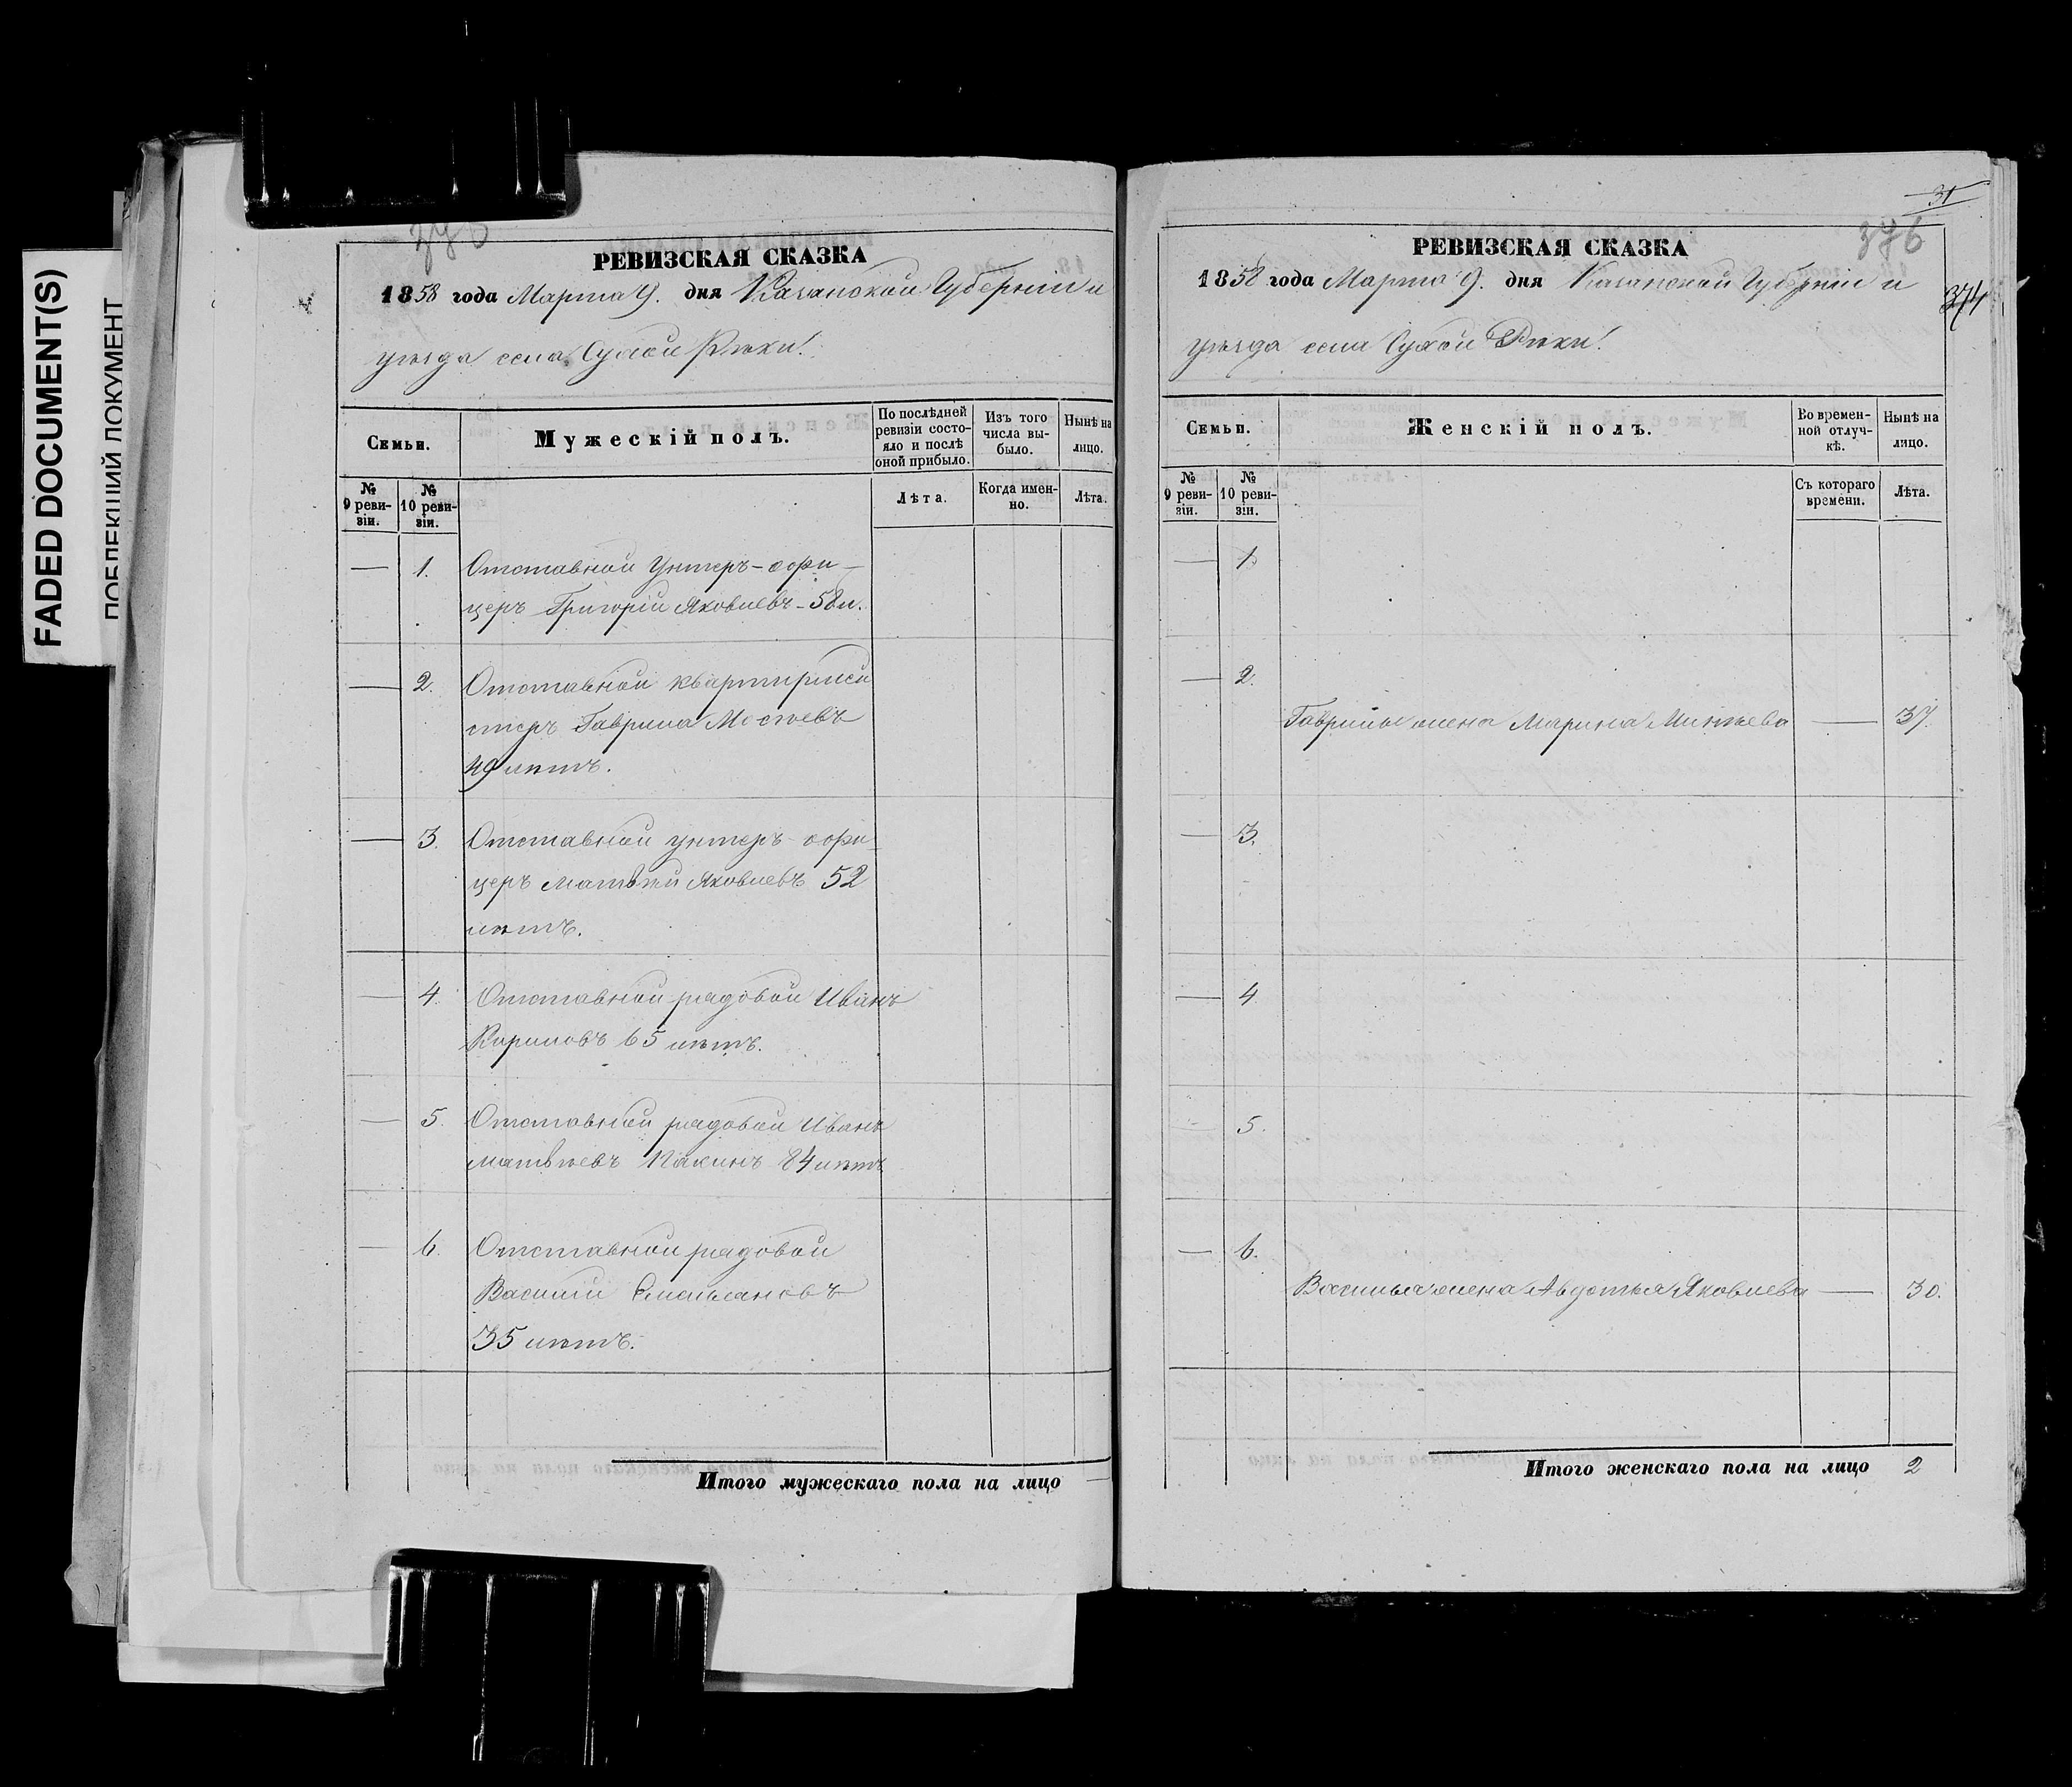 FADED DOCUMENT(S)
376
РЕВИЗСКАЯ СКАЗКА
1858 года Марта 9. дня Казанской Губерніи и
уѣзда села Сухой Рѣки!
Семьи.
Мужескій полъ.
По послѣдней ревизіи состояло и послѣ оной прибыло.
Изъ того числа выбыло.
Нынѣ на лицо.
№ 9 ревизіи.
№ 10 ревизіи.
Лѣта.
Когда именно.
Лѣта.
— 1. Отставной Унтеръ-офи-
церъ Григорій Яковлевъ - 58 л.
— 2. Отставной квартирмей
стеръ Гаврила
49 лѣтъ.
— 3. Отставной унтеръ-офи-
церъ Матвѣй Яковлевъ 52
лѣтъ.
— 4. Отставной рядовой Иванъ
Кириловъ 65 лѣтъ.
— 5. Отставной рядовой Иванъ
Матвѣевъ 84 лѣтъ
— 6. Отставной рядовой
Василій Емельяновъ
35 лѣтъ.
Итого мужескаго пола на лицо —
31
376
374
РЕВИЗСКАЯ СКАЗКА
1858 года Марта 9. дня Казанской Губерніи и
уѣзда села Сухой Рѣки!
Семьи.
Женскій полъ.
Во временной отлучкѣ.
Нынѣ на лицо.
№ 9 ревизіи.
№ 10 ревизіи.
Съ котораго времени.
Лѣта.
— 1.
— 2.
Гаврилы жена Марина — 37.
— 3.
— 4
— 5.
— 6.
Василья жена Авдотья Яковлева — 30.
Итого женскаго пола на лицо 2